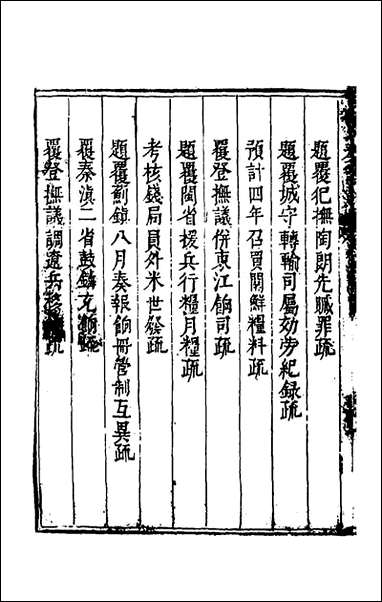 題覆犯撫陶朗先贓罪疏
題覆城守轉輸司屬効勞紀録疏
預計四年召買関鮮糧料疏
覆登撫議併東江餉司疏
題覆閩省援兵行糧月糧疏
考核錢局員外米世發疏
題覆薊鎮八月奏報餉冊管制互異疏
覆秦滇二省鼓鑄充餉疏
覆登撫議調遼兵疏